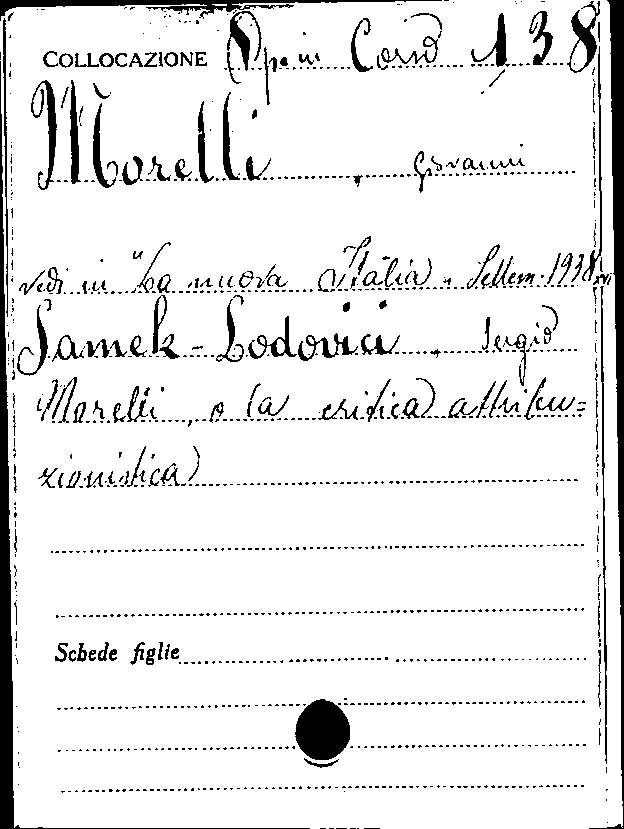 COLLOCAZIONE Op. in Corso 138
Morelli, Giovanni
vedi in "La nuova Italia" Settem. 1938 XVI
Samek-Lodovici, Sergio
Morelli, o la critica attribu=
zionistica
Schede figlie